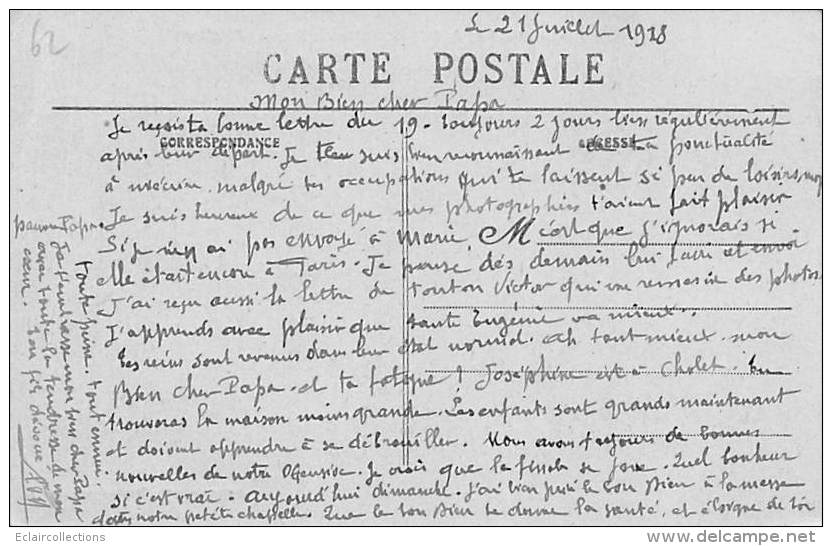 62
Le 21 Juillet 1918
CARTE POSTALE
Mon Bien cher Papa
Je reçois ta bonne lettre du 19 - toujours 2 jours bien régulièrement
CORRESPONDANCE
après leur départ. Je suis bien reconnaissant de ta ponctualité
à m'écrire, malgré tes occupations qui te laissent si peu de loisirs, mon
pauvre Papa.
Je suis heureux de ce que mes photographies t'aient fait plaisir
Si je n'en ai pas envoyé à Marie, c'est que j'ignorais si
elle était encore à Paris. Je pense dès demain lui faire et envoi
J'ai reçu aussi la lettre de tonton Victor qui me remercie des photos,
J'apprends avec plaisir que tante Eugénie va mieux.
Les reins sont revenus dans leur état normal. Ah tant mieux. mon
Bien cher Papa. et ta fatigue ! Joséphine est à Cholet. Tu
trouveras la maison moins grande. Les enfants sont grands maintenant
et doivent apprendre à se débrouiller. Nous avons toujours de bonnes
nouvelles de notre Offensive. Je crois que la fin se joue. Quel bonheur
si c'est vrai. aujourd'hui dimanche. J'ai bien prié le bon Dieu à la messe
dans notre petite chapelle. Que le bon Dieu te donne la santé, et éloigne de toi
toute peine, tout ennui.
Je t'embrasse mon bien cher Papa
avec toute la tendresse de mon
coeur. Ton fils dévoué
Eclaircollections
delcampe.net